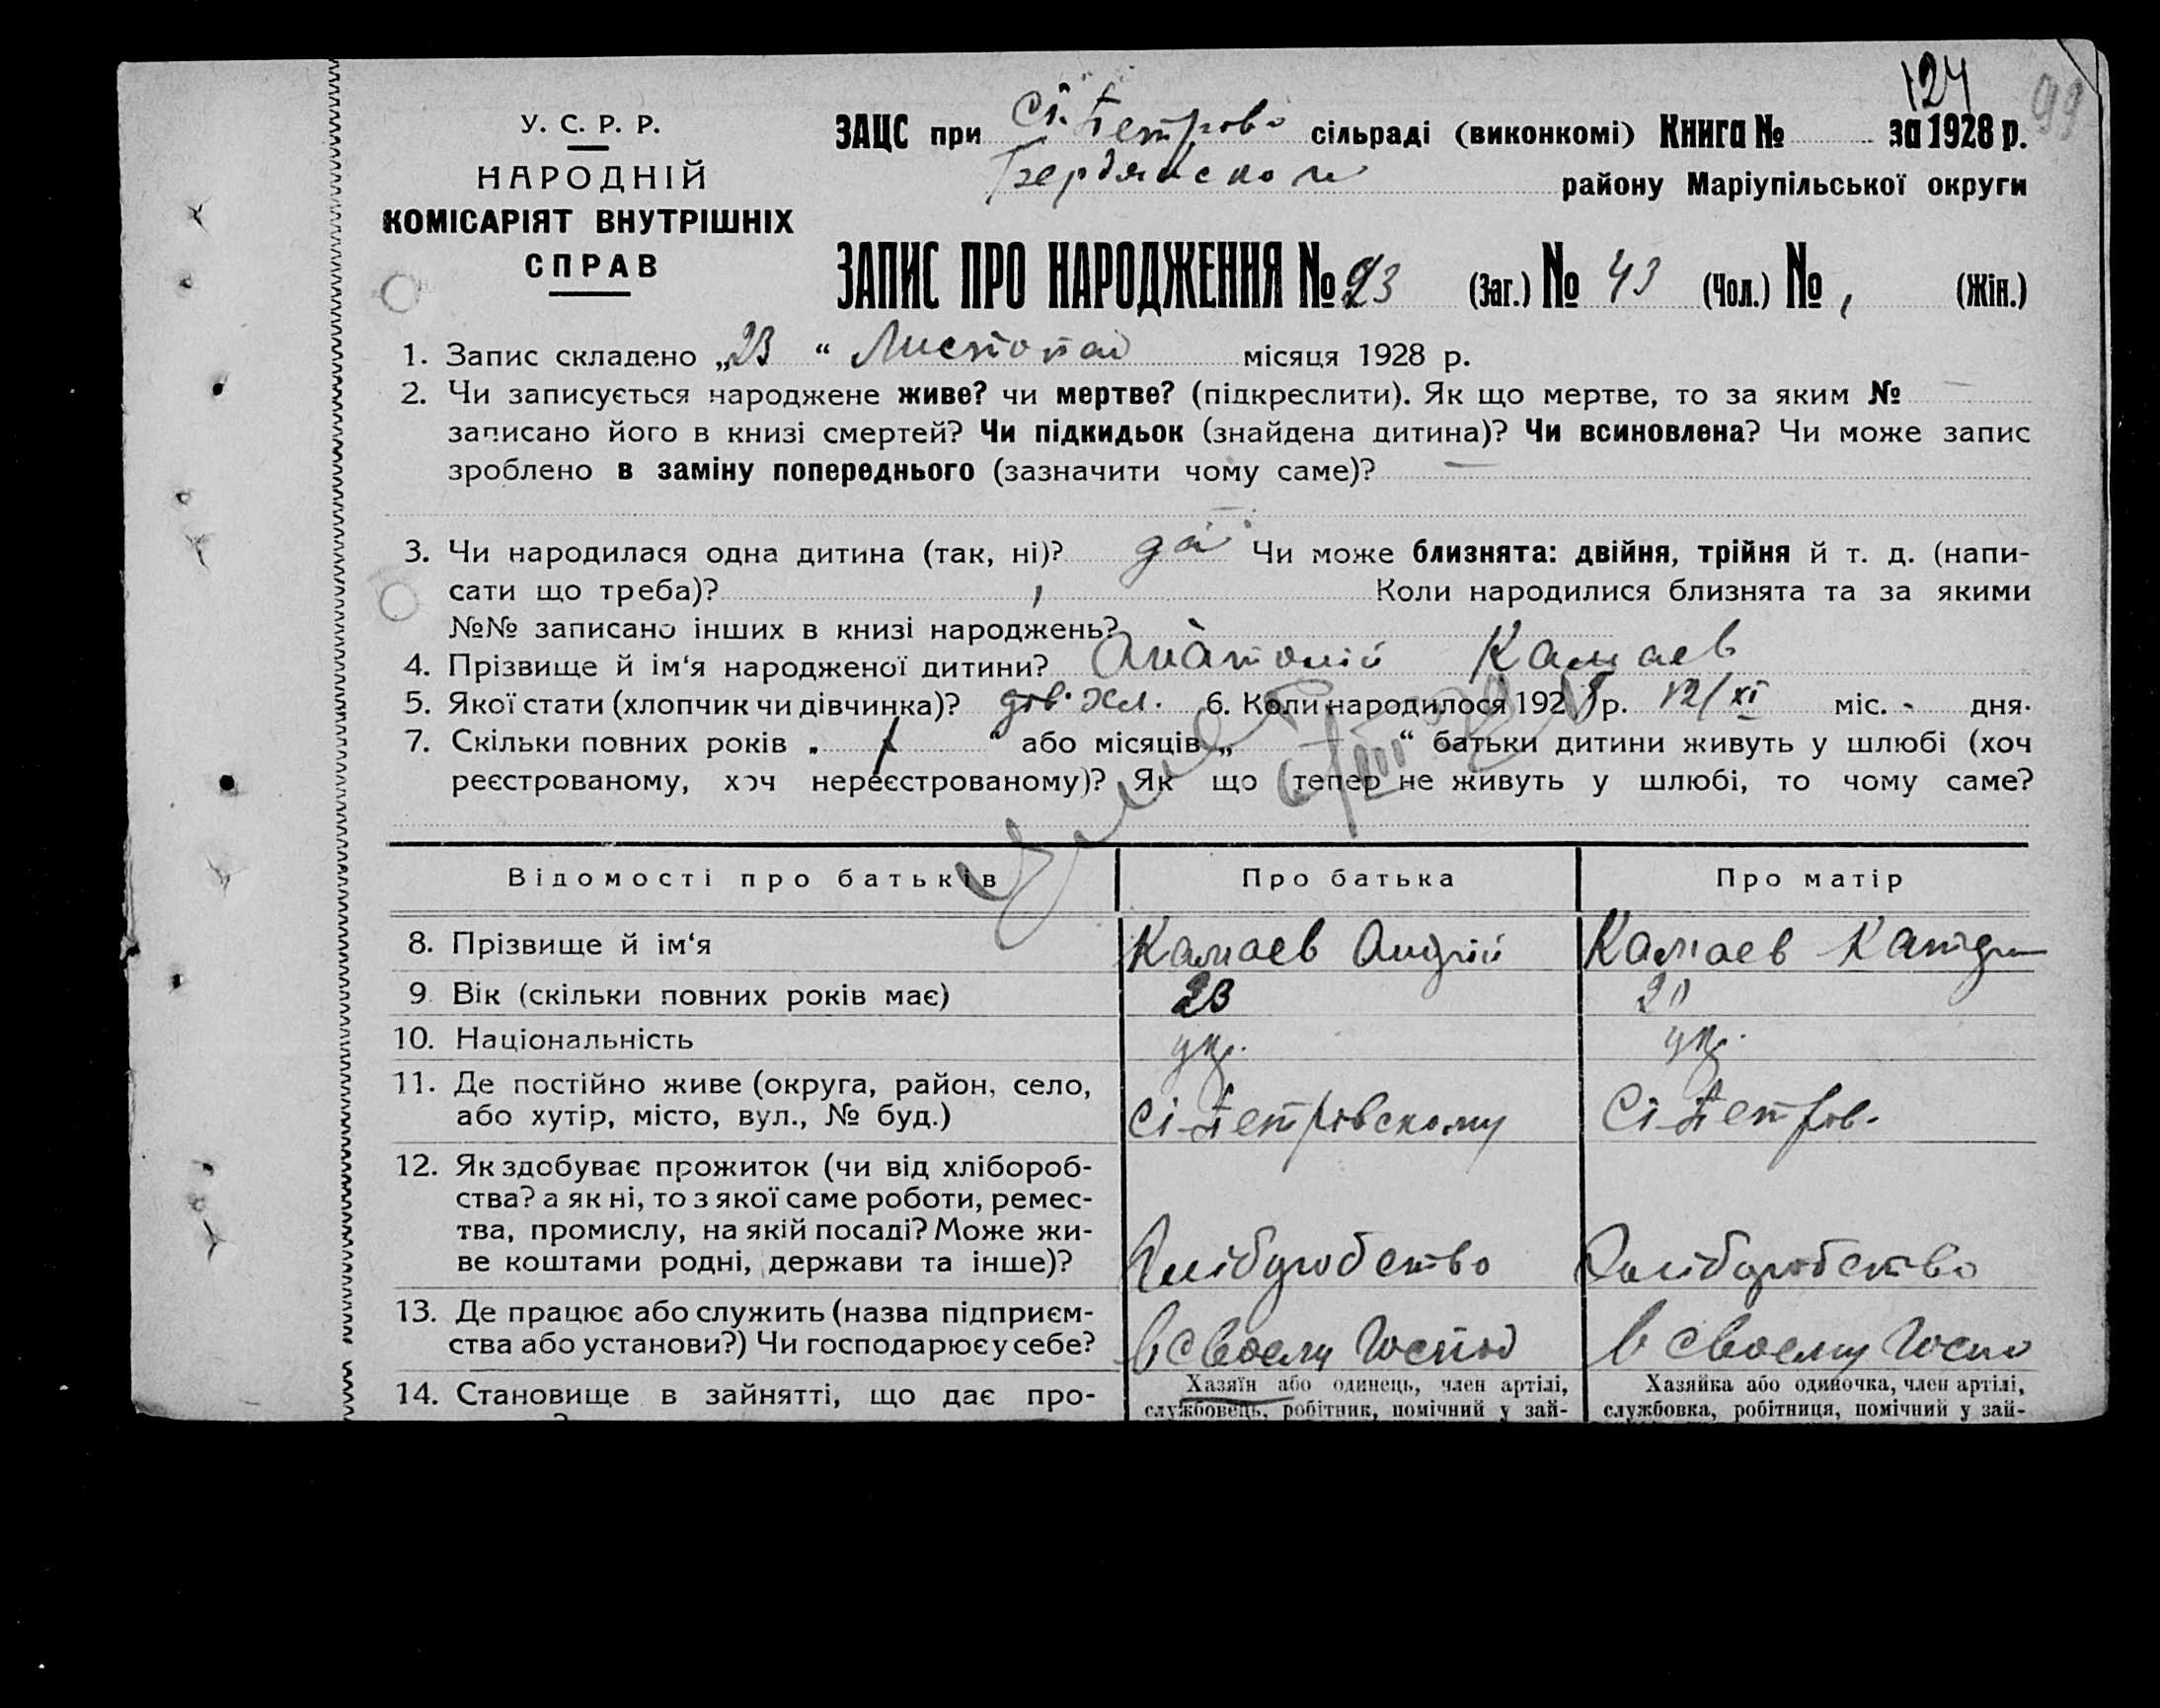 124
99
У. С. Р. Р.
НАРОДНІЙ
КОМІСАРІЯТ ВНУТРІШНІХ
СПРАВ
ЗАЦС при Ст. Петрово сільраді (виконкомі) Книга № за 1928 р.
Бердянском району Маріупільської округи
ЗАПИС ПРО НАРОДЖЕННЯ № 93 (Заг.) № 43 (Чол.) № (Жін.)
1. Запис складено „23“ Листопад місяця 1928 р.
2. Чи записується народжене живе? чи мертве? (підкреслити). Як що мертве, то за яким №
записано його в книзі смертей? Чи підкидьок (знайдена дитина)? Чи всиновлена? Чи може запис
зроблено в заміну попереднього (зазначити чому саме)? —
3. Чи народилася одна дитина (так, ні)? да Чи може близнята: двійня, трійня й т. д. (напи-
сати що треба)? Коли народилися близнята та за якими
№№ записано інших в книзі народжень?
4. Прізвище й ім‘я народженої дитини? Анатоній Камаев
5. Якої стати (хлопчик чи дівчинка)? хл. 6. Коли народилося 1928 р. 12/XI міс. - дня.
7. Скільки повних років „ “ або місяців „ “ батьки дитини живуть у шлюбі (хоч
реєстрованому, хоч нереєстрованому)? Як що тепер не живуть у шлюбі, то чому саме?
Відомості про батьків Про батька Про матір
8. Прізвище й ім‘я Камаев Андрій Камаев
9. Вік (скільки повних років має) 23 20
10. Національність ук. ук.
11. Де постійно живе (округа, район, село, Ст-Петровскому Ст-Петров.
або хутір, місто, вул., № буд.)
12. Як здобуває прожиток (чи від хлібороб-
ства? а як ні, то з якої саме роботи, ремес-
тва, промислу, на якій посаді? Може жи-
ве коштами родні, держави та інше)? Хліборобство Хліборобство
13. Де працює або служить (назва підприєм-
ства або установи?) Чи господарює у себе? в своему Господ в своему Госпо
14. Становище в зайнятті, що дає про- Хазяїн або одинець, член артілі, Хазяйка або одиночка, член артілі,
службовець, робітник, помічний у зай- службовка, робітниця, помічний у зай-